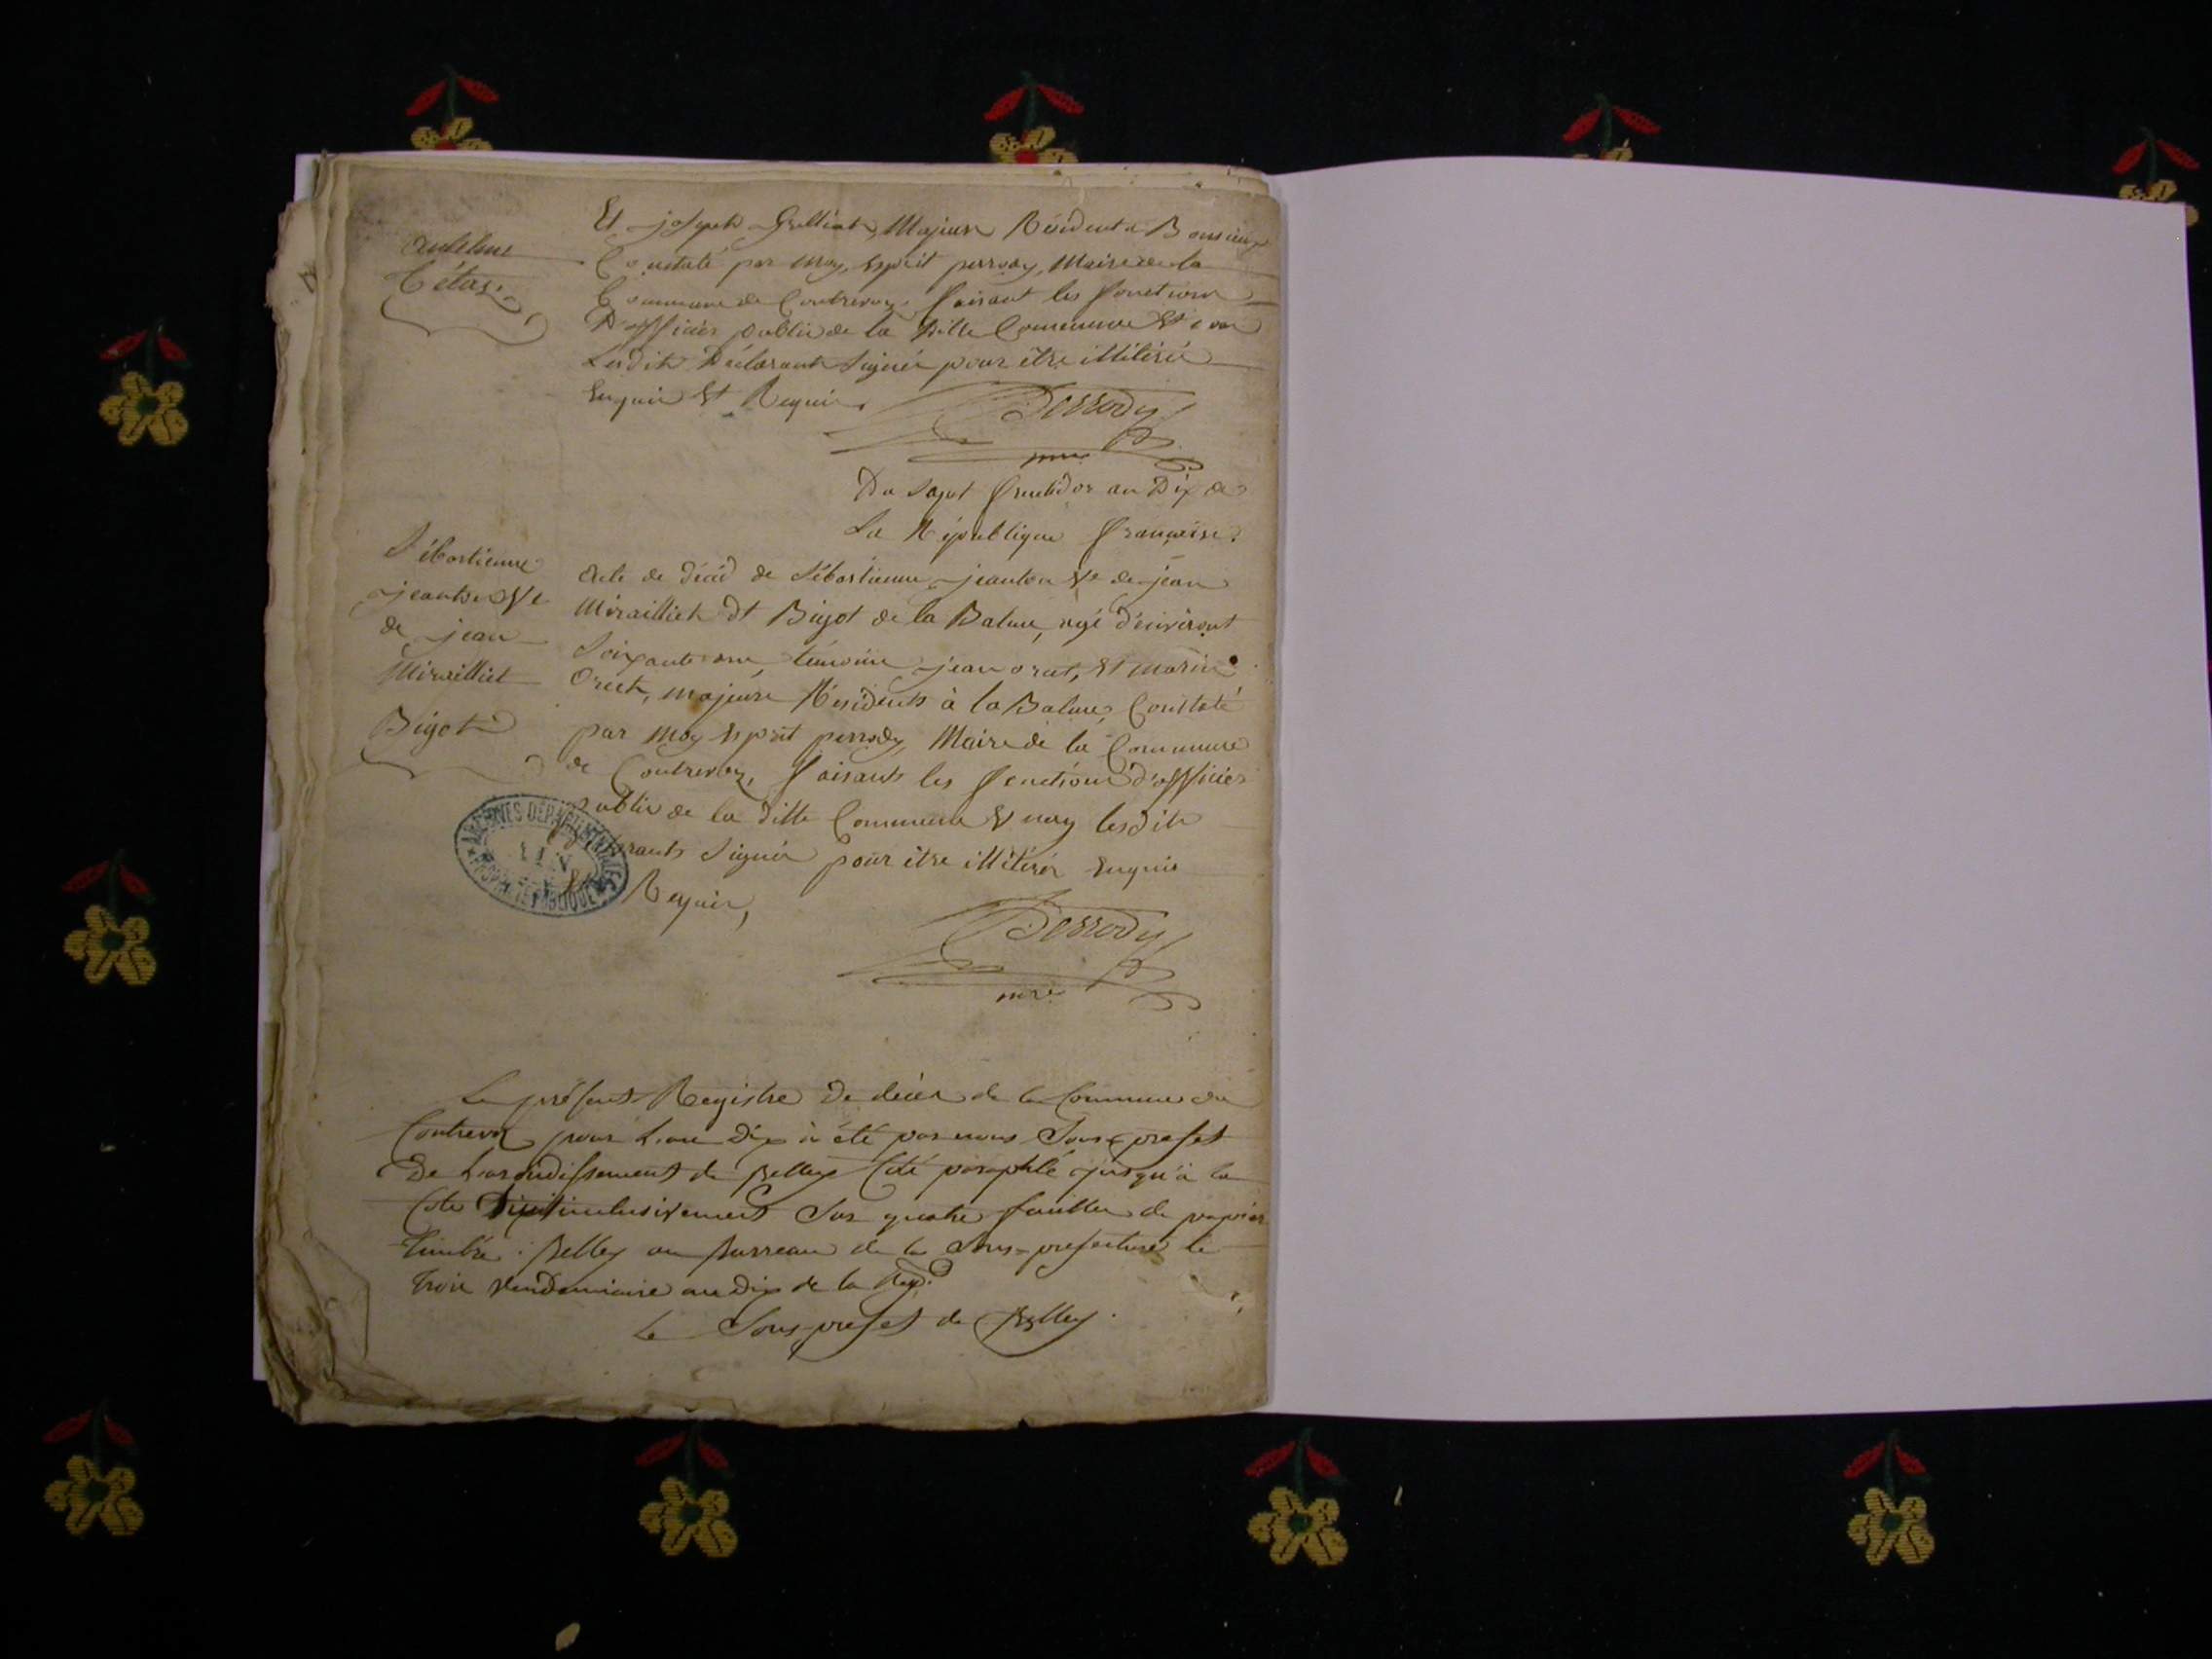 anthelme
Tétaz
Et joseph Grilliet, Majeurs Résidents
Constaté par moy, Esprit perrody, Maire de la
Commune de Contrevoz, faisant les fonctions
D'officier public de la ditte Commune Et non
Lesdits Déclarants Signés pour être illiterés
Enquis Et Requis.
Perrody
mre
Du Sept fructidor an Dix de
La République française.
Sébastienne
jeanton Ve
de jean
Miraillet
Bigot
Acte de décéd de Sébastienne jeanton Ve de jean
Mirailliet dt Bigot de la Balme, agé d'environt
Soixante ans, témoins jean orset, Et marin
Orset, majeurs Résidents à la Balme, Constaté
par moy Esprit perrody, Maire de la Commune
de Contrevoz, faisants les fonctions d'officier
public de la ditte Commune Et non lesdits
déclarants Signés pour être illiterés Enquis
Et Requis,
ARCHIVES DÉPARTEMENTALES
AIN
PROPRIÉTÉ PUBLIQUE
Perrody
mre
Le présent Registre de décès de la Commune de
Contrevoz pour L'an Dix à été par nous Sous-prefet
De L'arondissement de Belley Coté paraphé jusqu'à la
Cote inclusivement Sur quatre feuilles de papier
Timbré. Belley au Burreau de la Sous-prefecture le
trois Vendemiaire an dix de la Rep.
Le Sous-prefet de Belley.